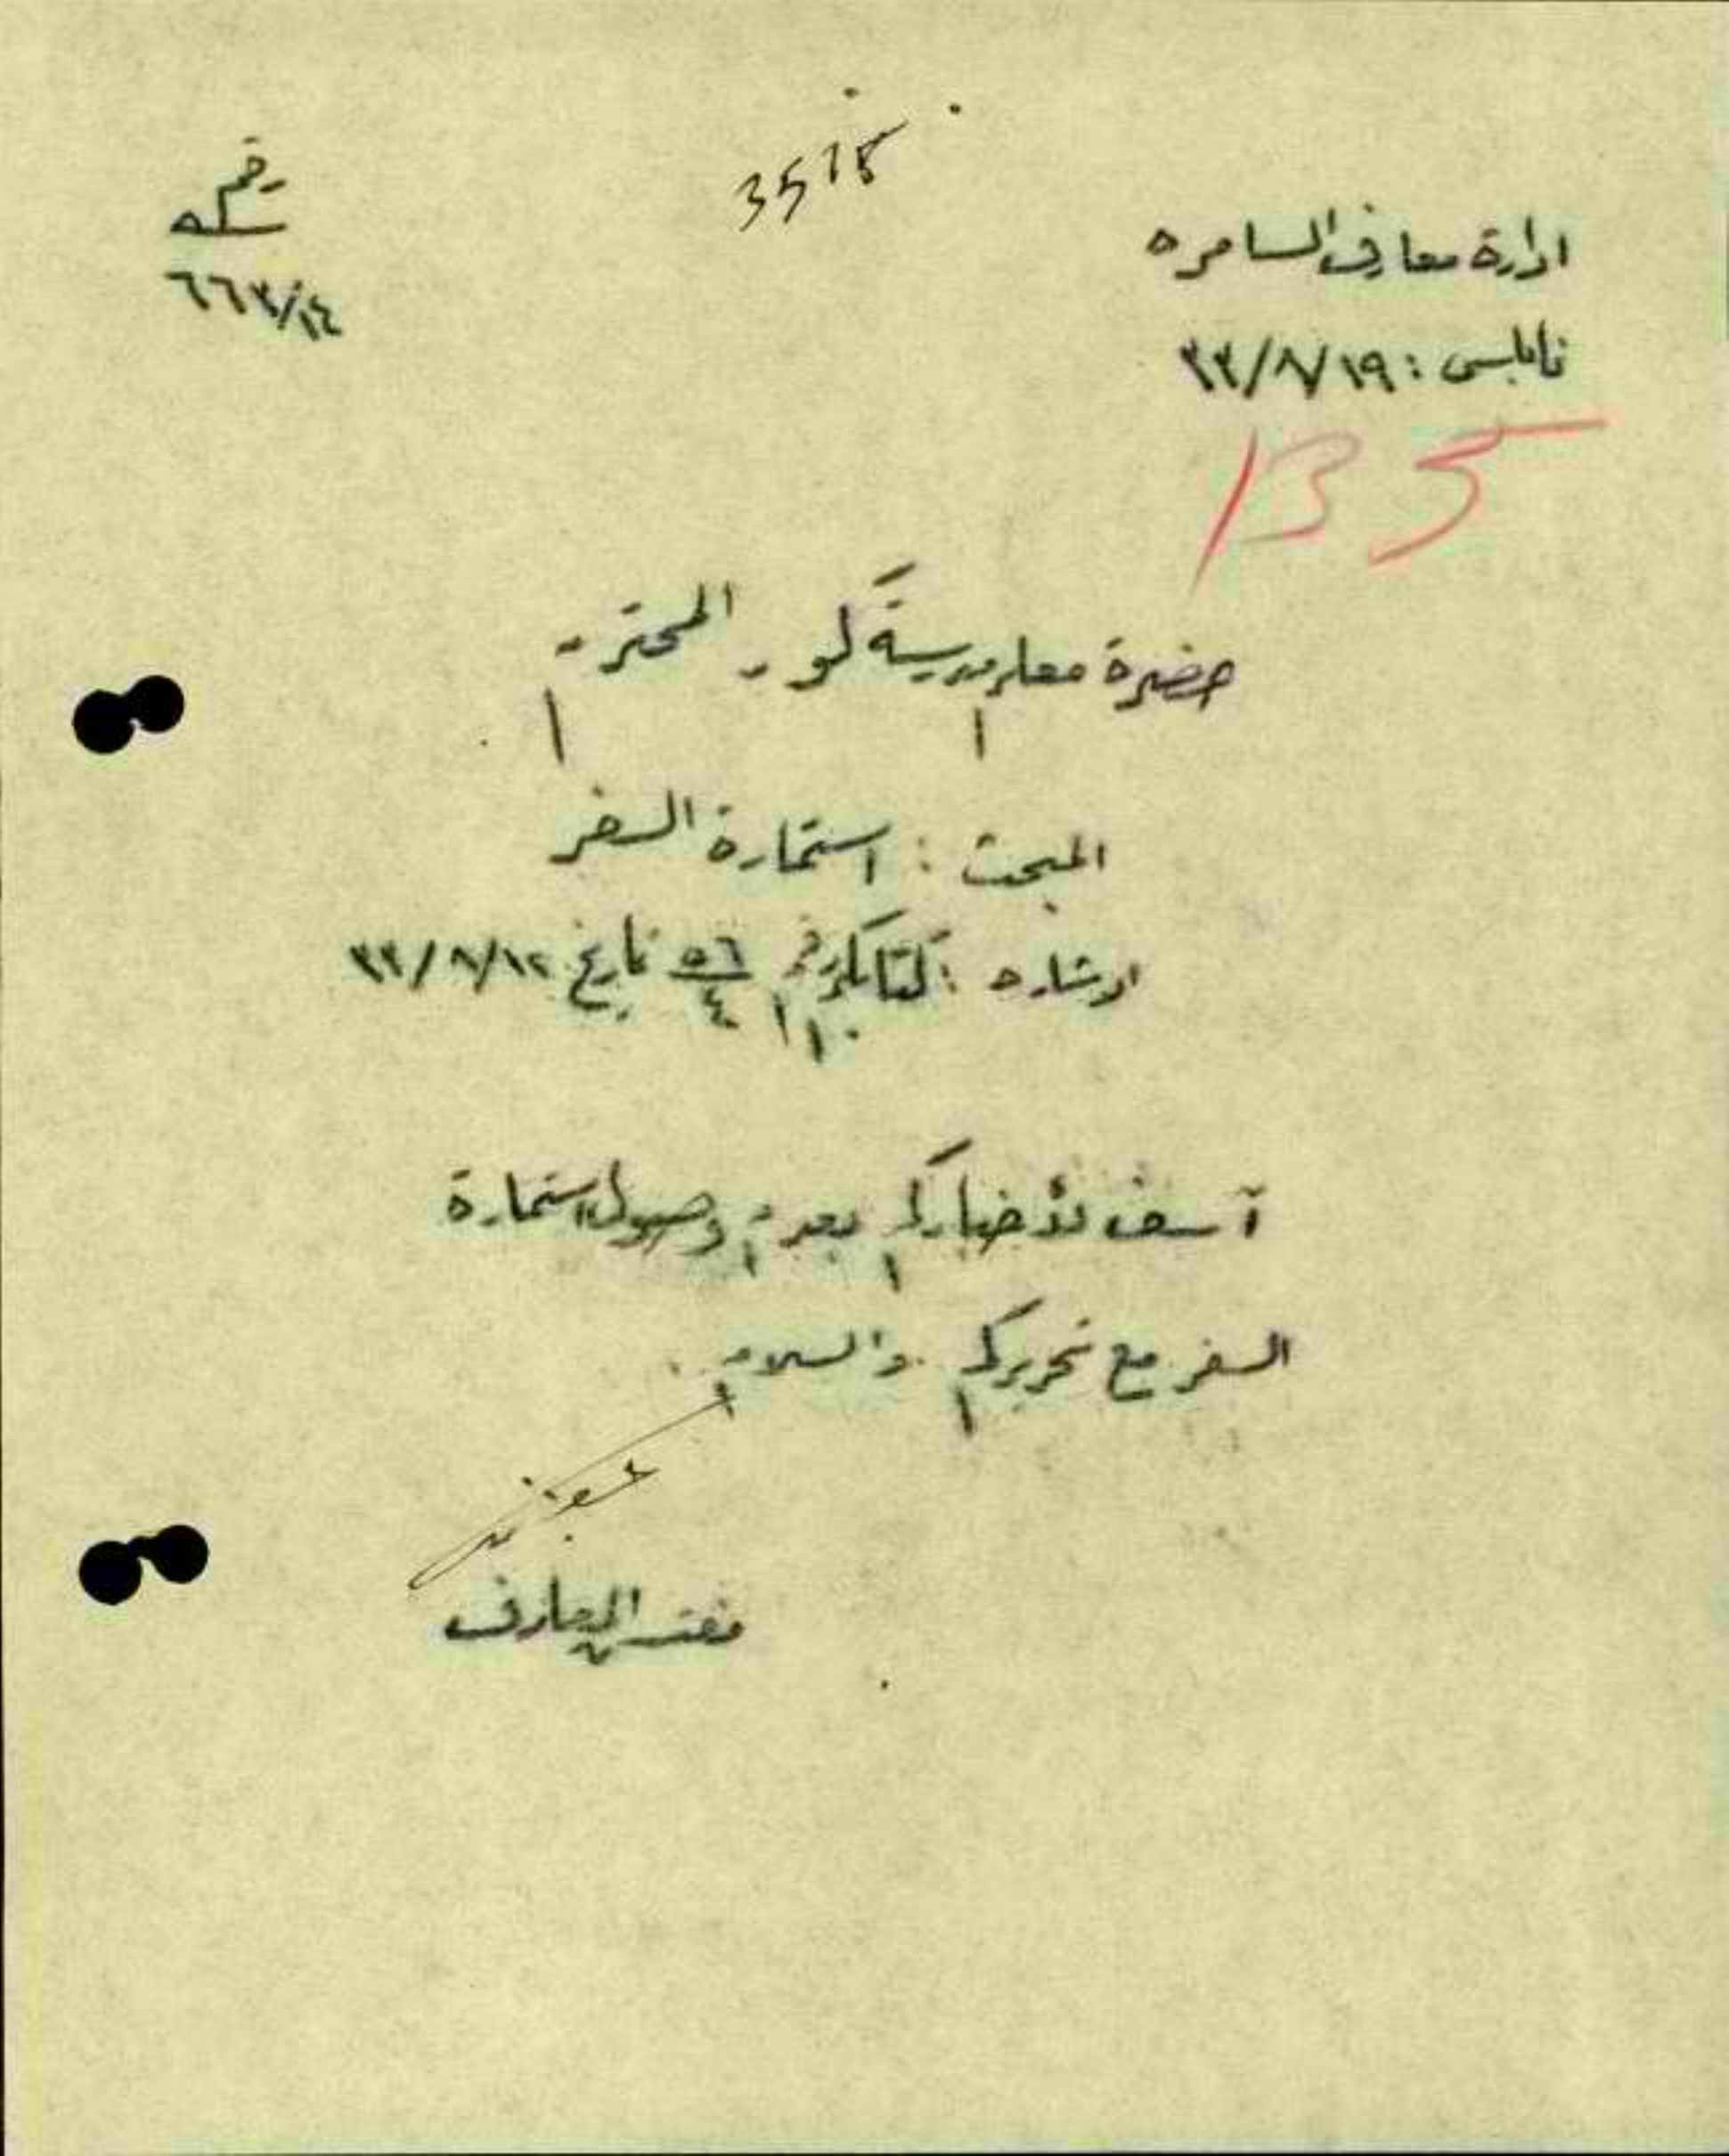 3515
رقم
ادارة معارف السامره
نابلس : ١٩/٨/٣٣
١٤/٦٦٣
135
حضرة معلم مدرسة كور المحترم
المبحث : استمارة السفر
الاشاره : كتابكم رقم ٥٦/٤ تاريخ ١٢/٨/٣٣
آسف لأخباركم بعدم وصول استمارة
السفر مع تحريركم . والسلام .
مفتش المعارف